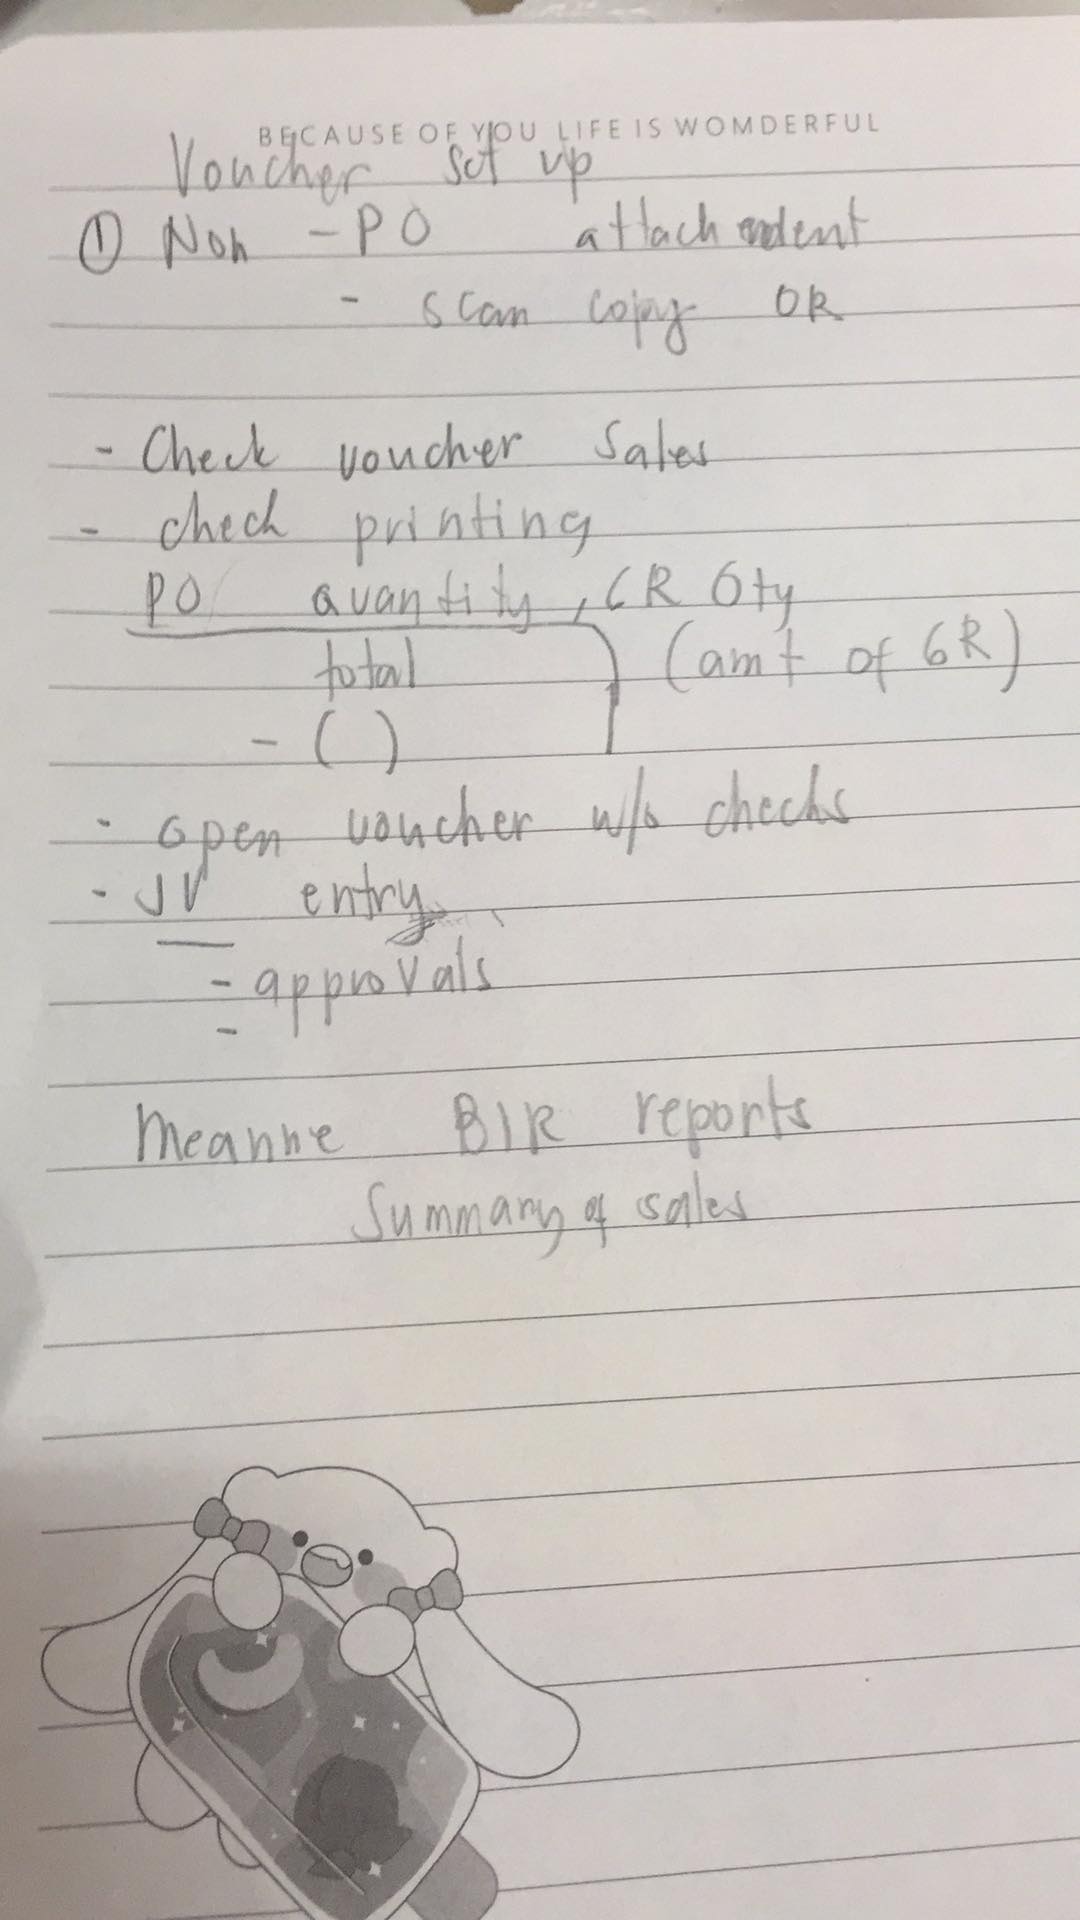 BECAUSE OF YOU LIFE IS WOMDERFUL
Voucher set up
① Non - PO attach
- scan copy OR
- Check voucher sales
- check printing
PO quantity, GR Qty
total (amt of GR)
- ( )
- open voucher w/o checks
- JV entry
- approvals
-
Meanne BIR reports
Summary of sales